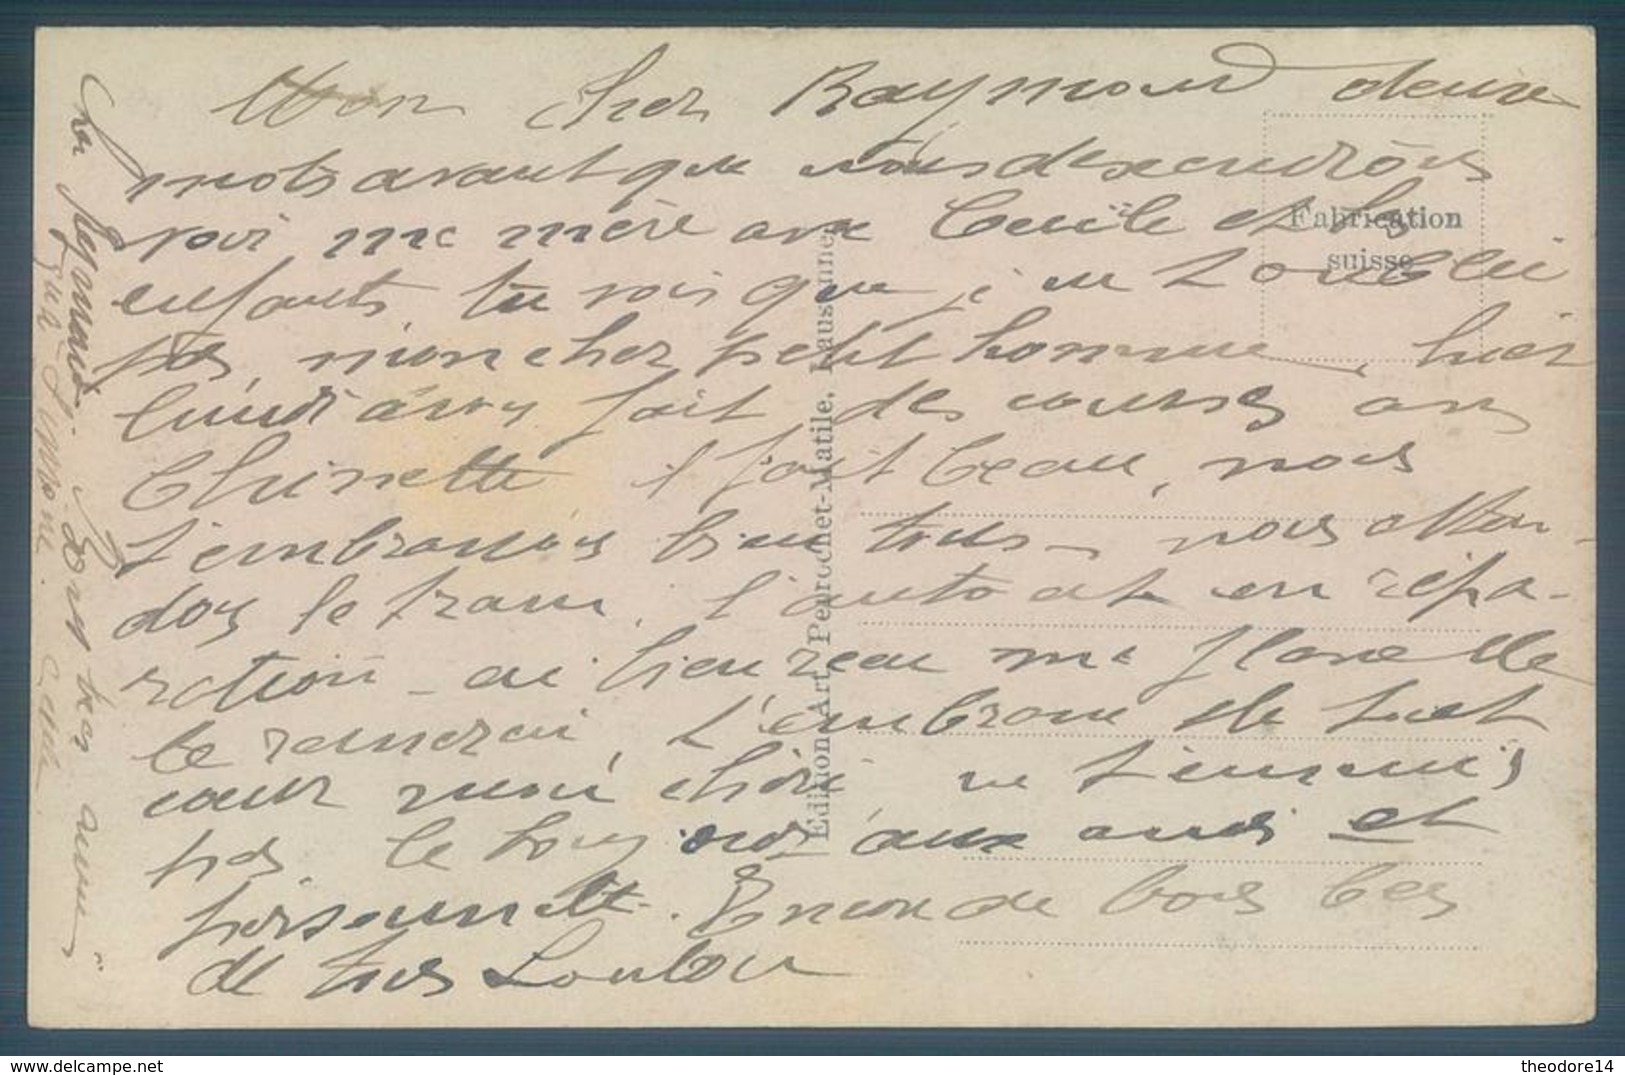 Mon cher Raymond deux
mots avant que nous descendrons
voir me mère avec Cecile et les
enfants tu vois que je ne t'oubli
pas, mon cher petit homme, hier
lundi avons fait des courses avec
il fait beau, nous
t'embrassons bien tous - nous atten-
dons le tram, l'auto et en répa-
ration - ai bien reçu me
te remerci, t'embrasse de tout
cœur mon chéri ne t'ennuis
pas, le bonjour aux amis et
Encore de bons bec
de tous Loulou
que Simone.
Fabrication
suisse
Edition Art. Perrochet-Matile, Lausanne
theodore14